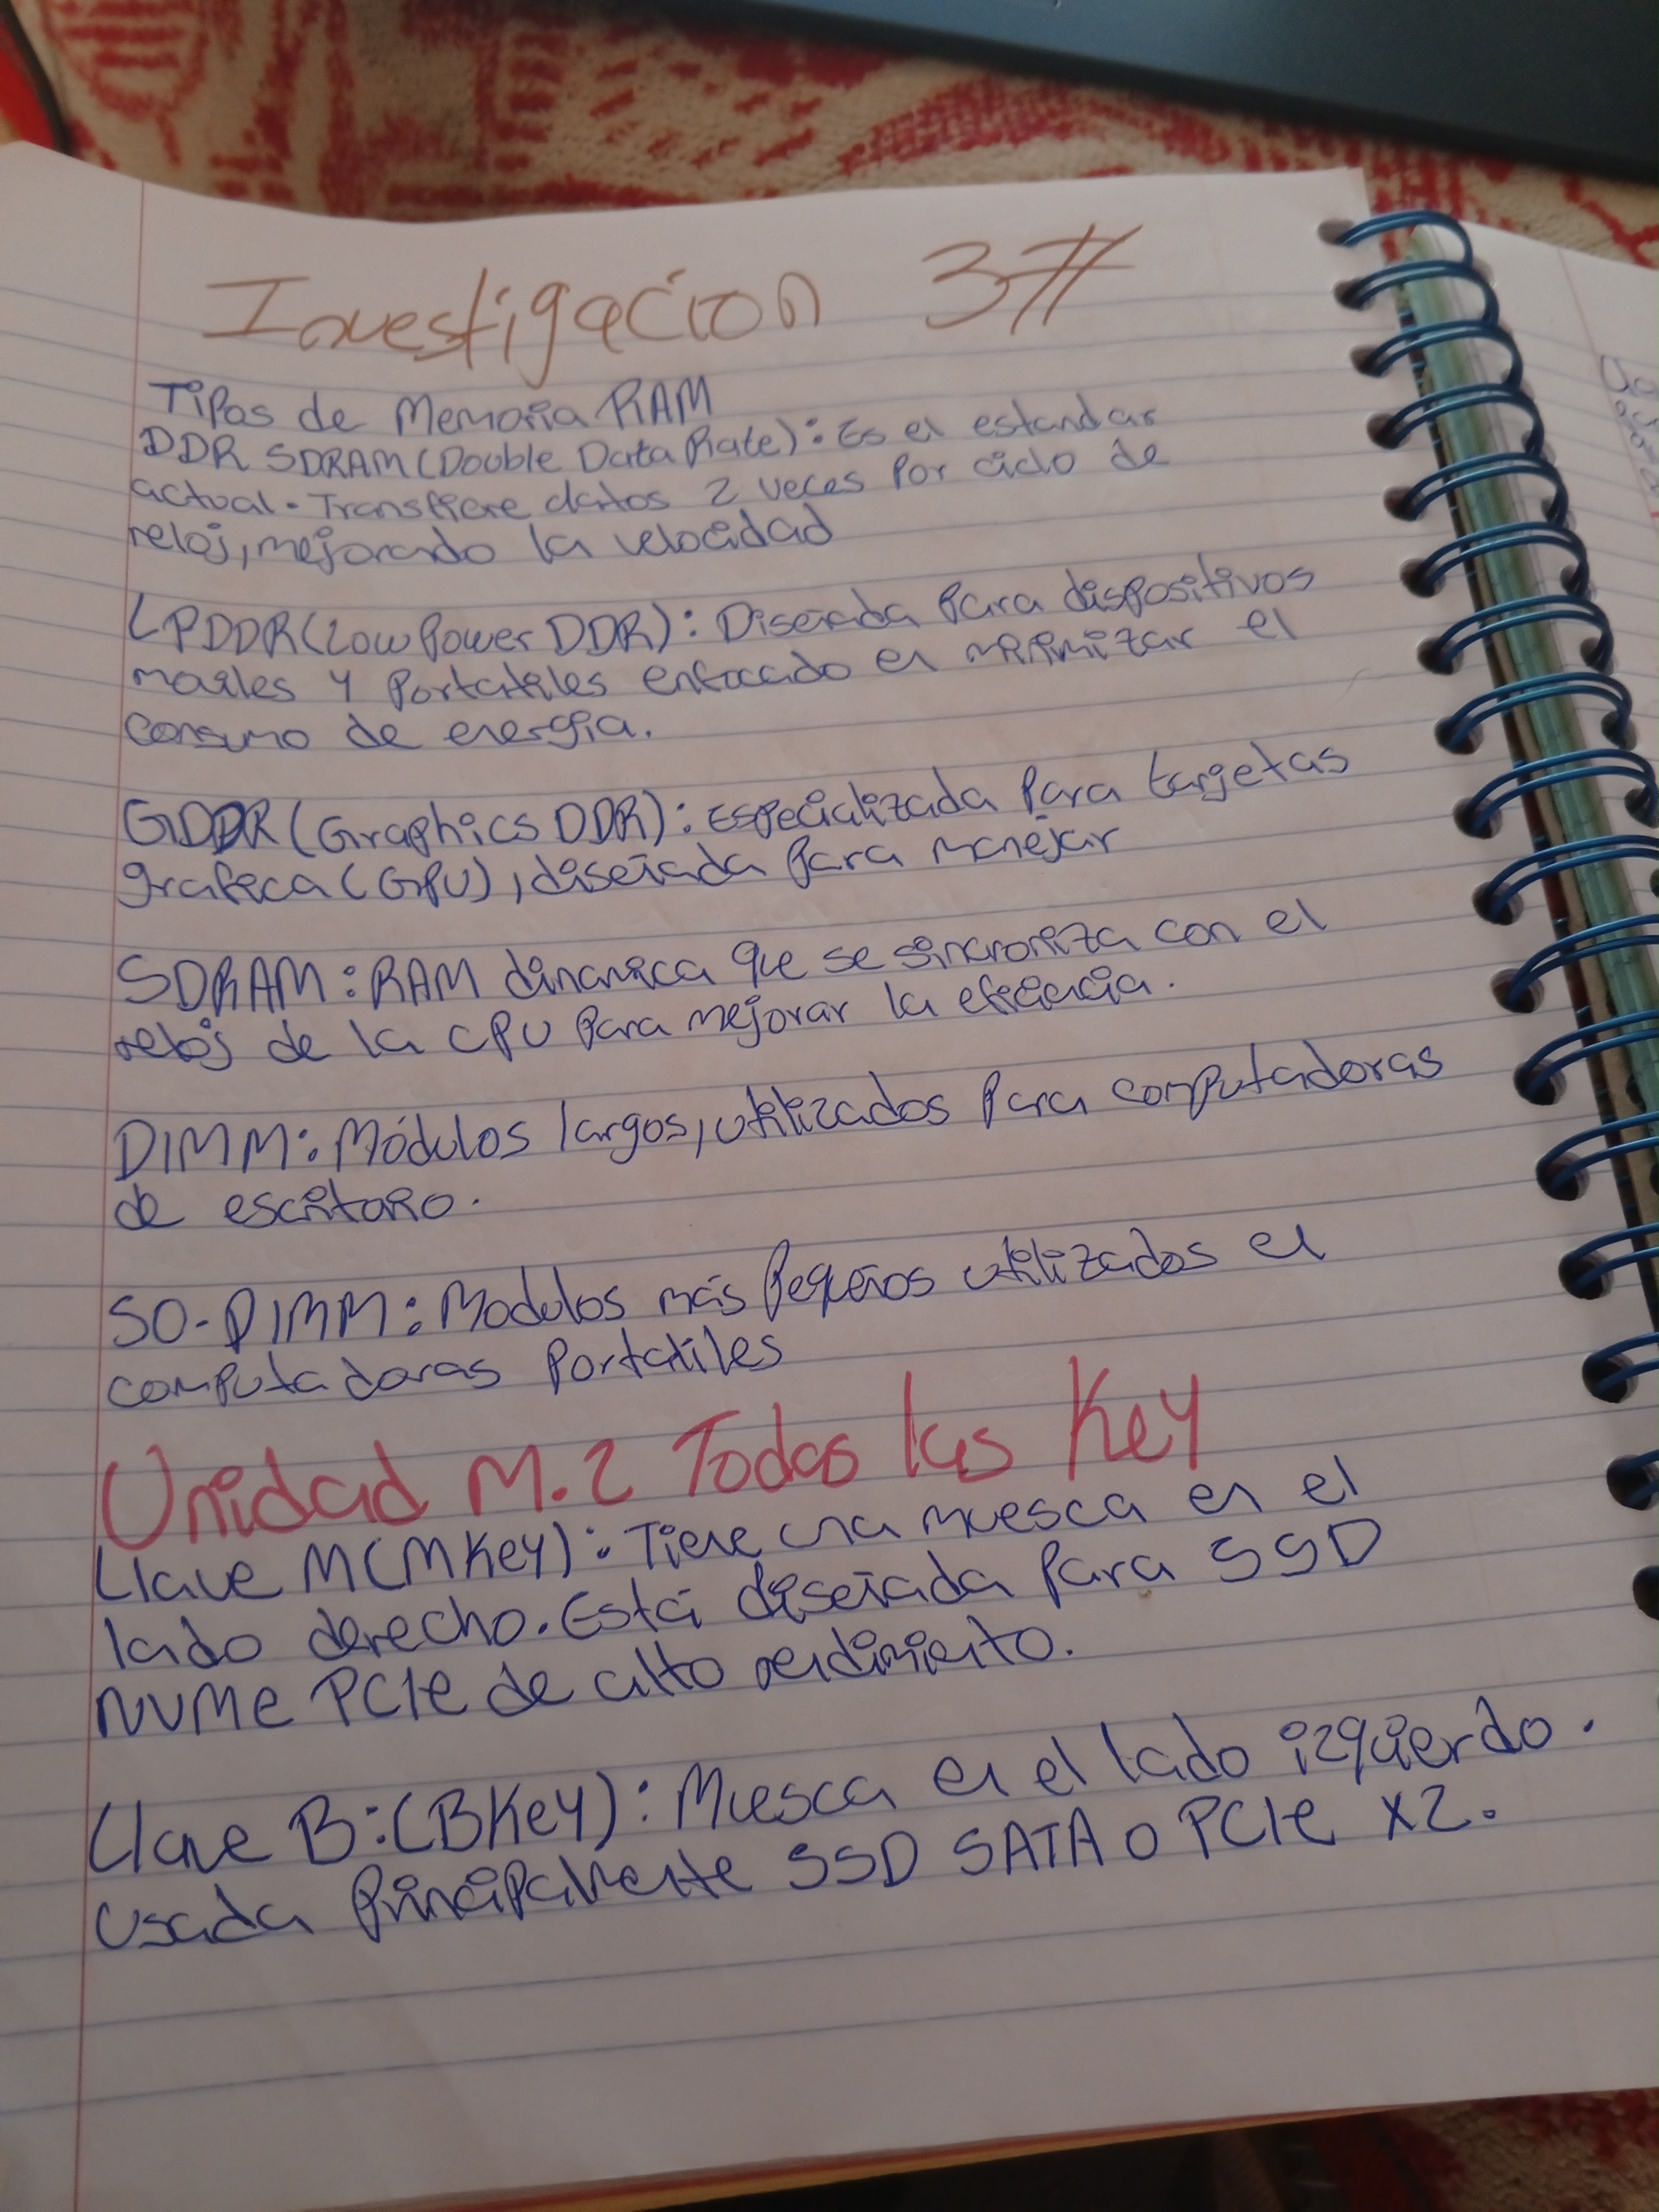 Investigacion 3#
Tipos de Memoria RAM
DDR SDRAM (Double Data Rate): Es el estandar
actual. Transfiere datos 2 veces por ciclo de
reloj, mejorando la velocidad
LPDDR (Low Power DDR): Diseñada para dispositivos
moviles y portatiles enfocado en minimizar el
consumo de energia.
GDDR (Graphics DDR): Especializada para targetas
grafica (GPU), diseñada para manejar
SDRAM: RAM dinamica que se sincroniza con el
reloj de la CPU para mejorar la eficiencia.
DIMM: Módulos largos, utilizados para computadoras
de escritorio.
SO-DIMM: Modulos más pequeños utilizados en
computadoras portatiles
Unidad M.2 Todas las Key
Llave M (M Key): Tiene una muesca en el
lado derecho. Está diseñada para SSD
NVMe PCIe de alto rendimiento.
Llave B: (B Key): Muesca en el lado izquierdo.
usada principalmente SSD SATA o PCIe X2.